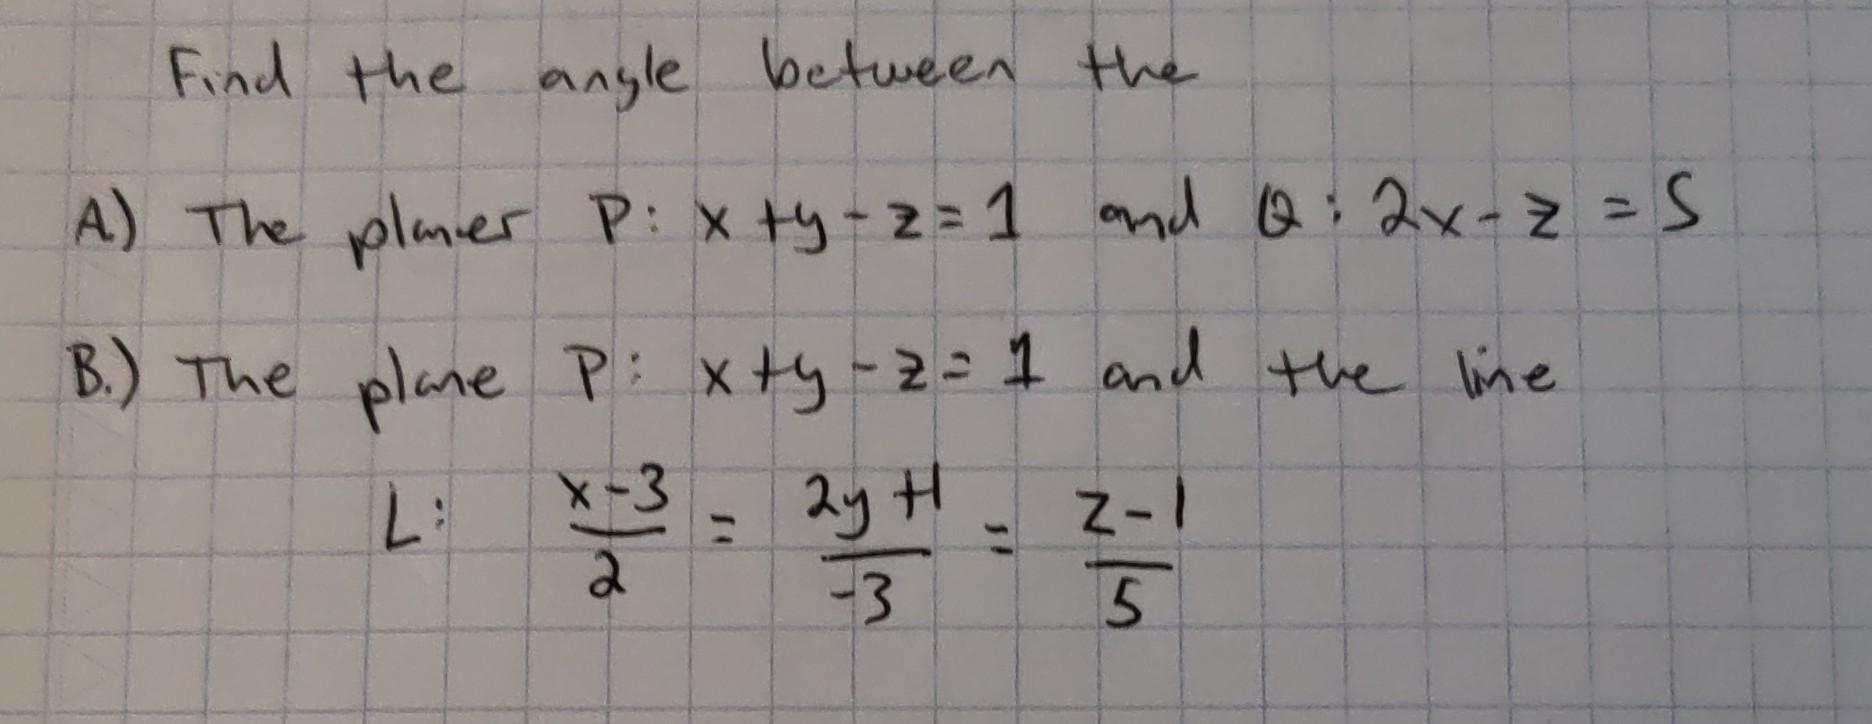 Find the angle between the
A.) The planes P: x + y - z = 1 and Q: 2x - z = 5
B.) The plane P: x + y - z = 1 and the line
L: \frac{x-3}{2} = \frac{2y+1}{-3} = \frac{z-1}{5}